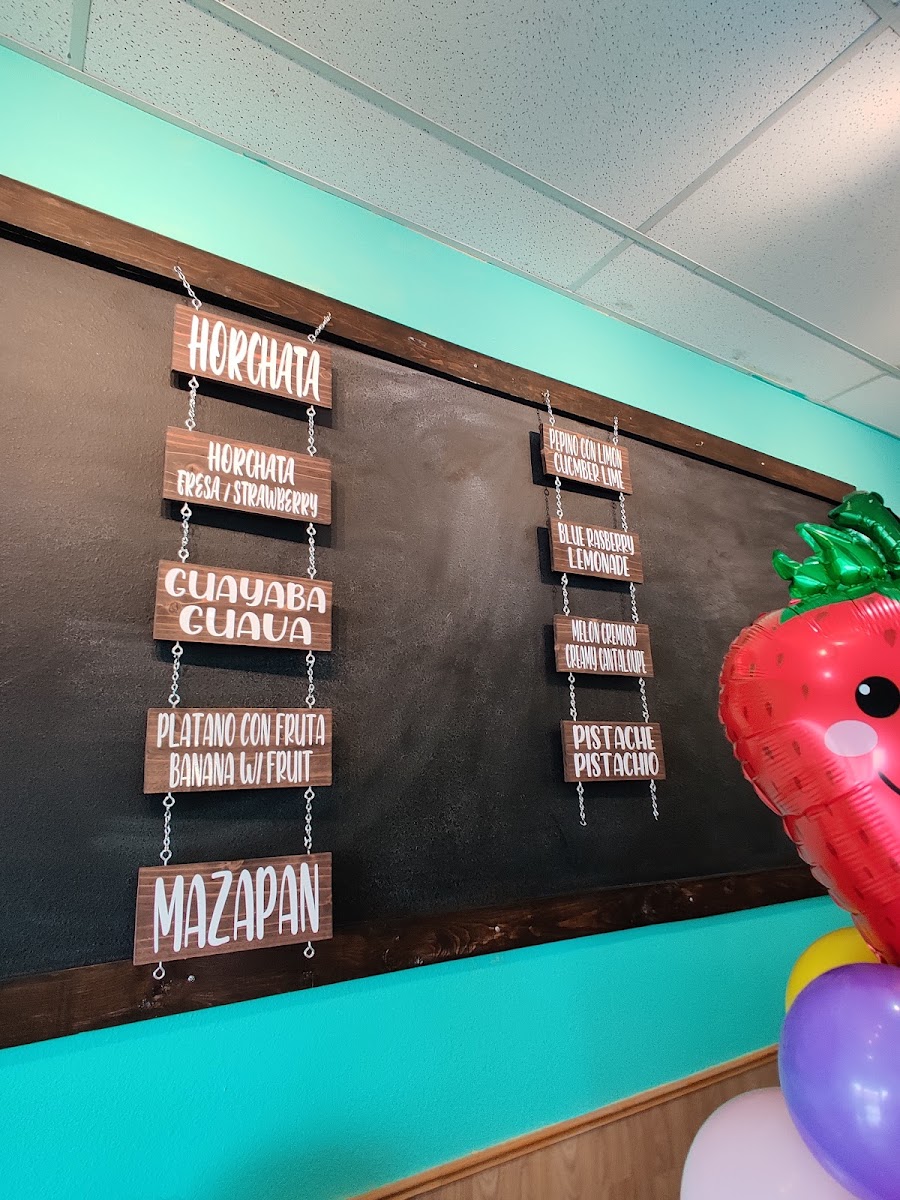 HORCHATA
HORCHATA
FRESA / STRAWBERRY
GUAYABA
GUAVA
PLATANO CON FRUTA
BANANA W/ FRUIT
MAZAPAN
PEPINO CON LIMON
CUCMBER LIME
BLUE RASBERRY
LEMONADE
MELON CREMOSO
CREAMY CANTALOUPE
PISTACHE
PISTACHIO